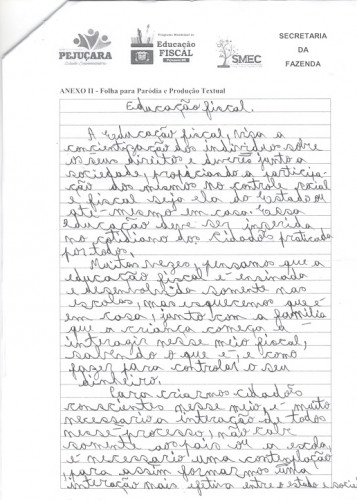 PEJUÇARA
Programa Municipal de
Educação
FISCAL
SMEC
SECRETARIA
DA
FAZENDA
ANEXO II - Folha para Paródia e Produção Textual
Educação fiscal.
A Educação fiscal, visa a
concientização dos indivíduos sobre
os seus direitos e deveres junto a
sociedade, propociando a participa-
ção dos mesmos no controle social
e fiscal seja ela do Estado ou
até-mesmo em casa. Essa
educação deve ser inserida
no cotidiano dos cidadãos praticada
por todos.
Muitas vezes, pensamos que a
educação fiscal é ensinada
e desenvolvida somente nas
escolas, mas esquecemos que é
em casa, junto com a família
que a criança começa a
interagir nesse meio fiscal,
sabendo o que é, e como
fazer para controlar o seu
dinheiro.
Para criarmos cidadãos
conscientes nesse meio, é muito
necessario a interação de todos
nesse processo, não cabe
somente aos pais ou a escola,
é necessario uma contemplação
para assim formarmos uma
interação mais efetiva entre o estado e socie